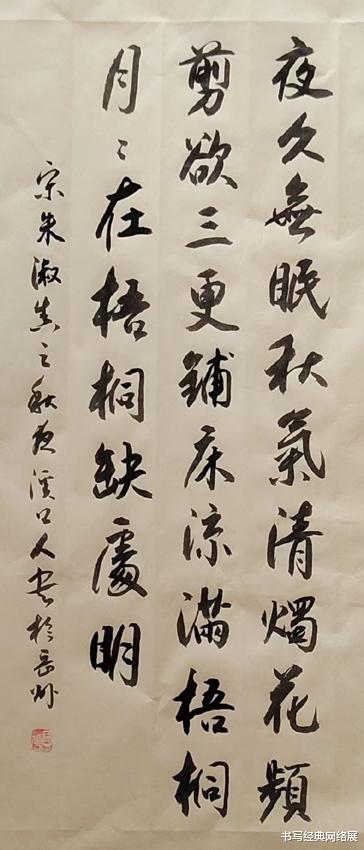 夜久無眠秋氣清燭花頻
剪欲三更鋪床涼滿梧桐
月々在梧桐缺處明
宋朱淑真之秋夜溪口人書於岳州
书写经典网络展